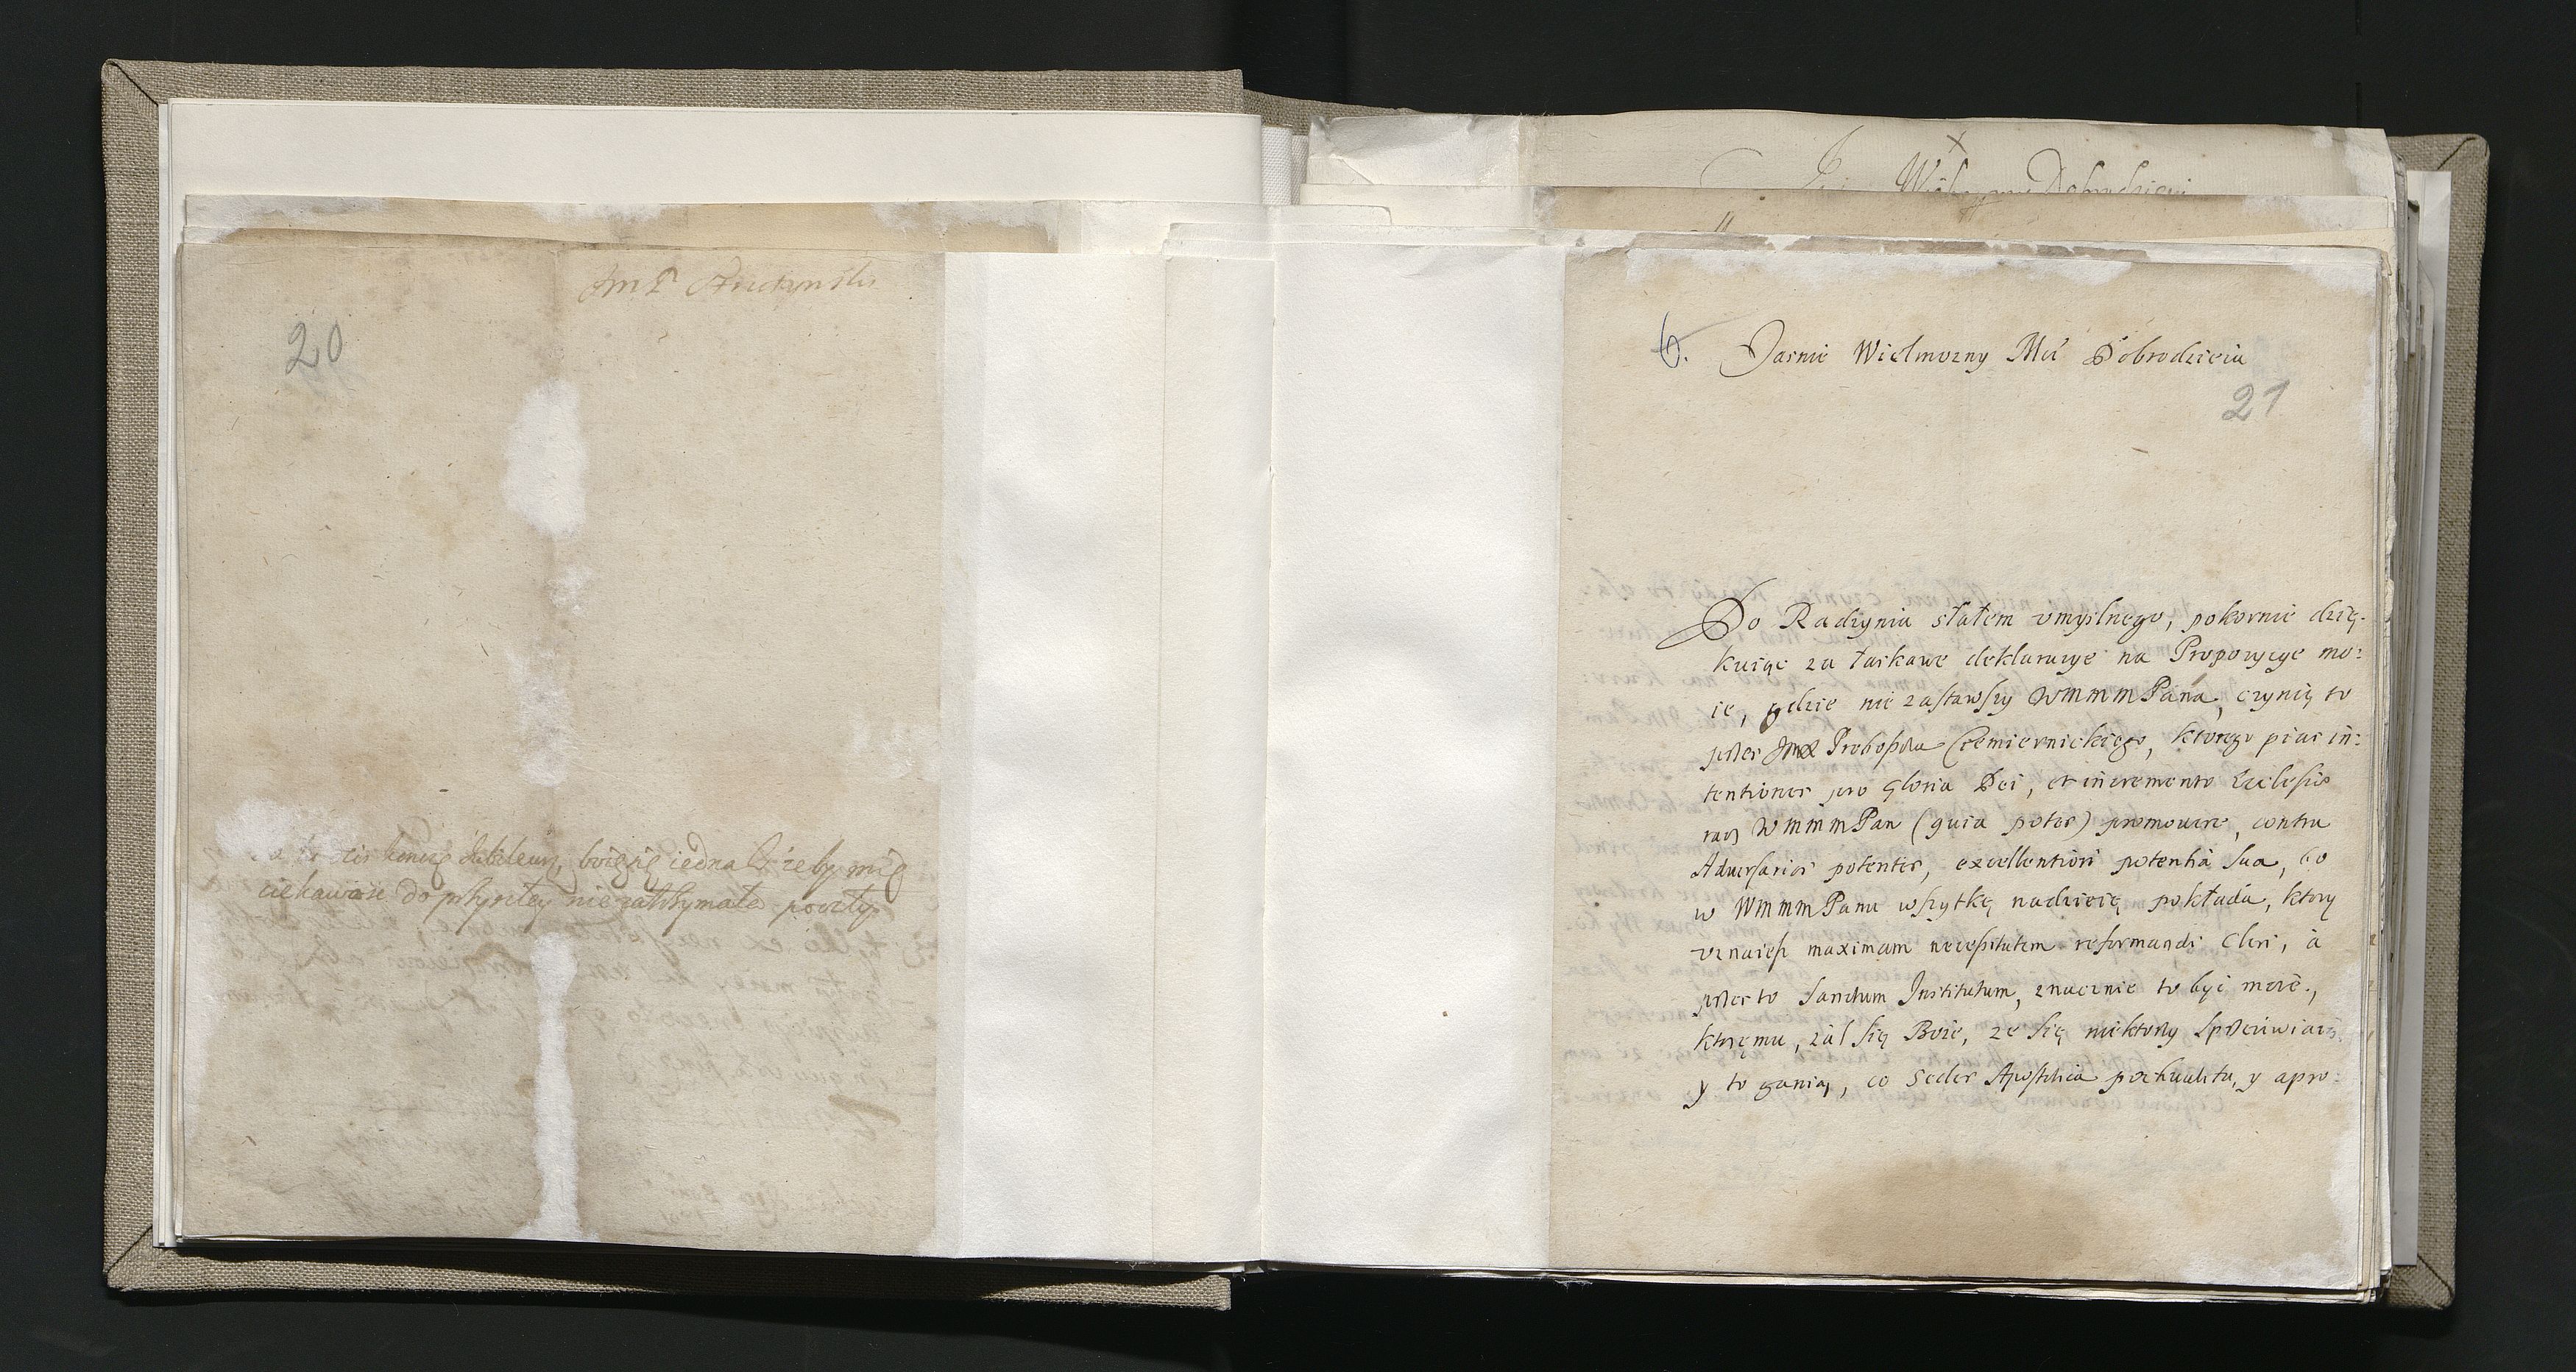 20
Jmć P
dziś kończę Jubileusz, boię się iednak żeby mię
ciekawość do przyszłey nie zatrzymała poczty
Wielmożny Dobrodzieiu
6. Jasnie Wielmozny Mći Dobrodzieiu
21
Do Radzynia słałem vmyslnego, pokornie dzię-
kuiąc za łaskawe deklaracye na Propozycye mo:
ie, gdzie nie zastawszy WMMM Pana, czynię to
przez Jmći Proboszcza Czemiernickiego, ktorego pias in:
tentiones pro Gloria Dei, et incremento Ecclesiæ
racz WMMM Pan (quia potes) promovere, contra
Adversarios potentes, excellentiori potentiâ sua, bo
w WMMM Panu wszytkę nadzieię pokłada, ktory
vznaiesz maximam necessitatem reformandi Cleri, à
przez to Sanctum Institutum, znacznie to być może,
ktoremu, żal się Boże, ze się niektorzy sprzeciwiaią,
y to ganią, co Sedes Apostolica pochwaliła, y apro: